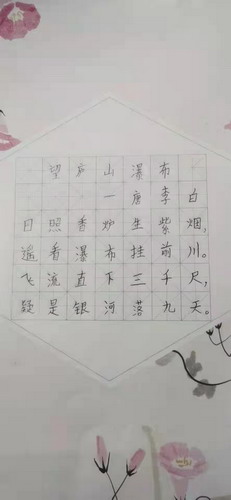 望庐山瀑布
一唐李白
日照香炉生紫烟，
遥看瀑布挂前川。
飞流直下三千尺，
疑是银河落九天。